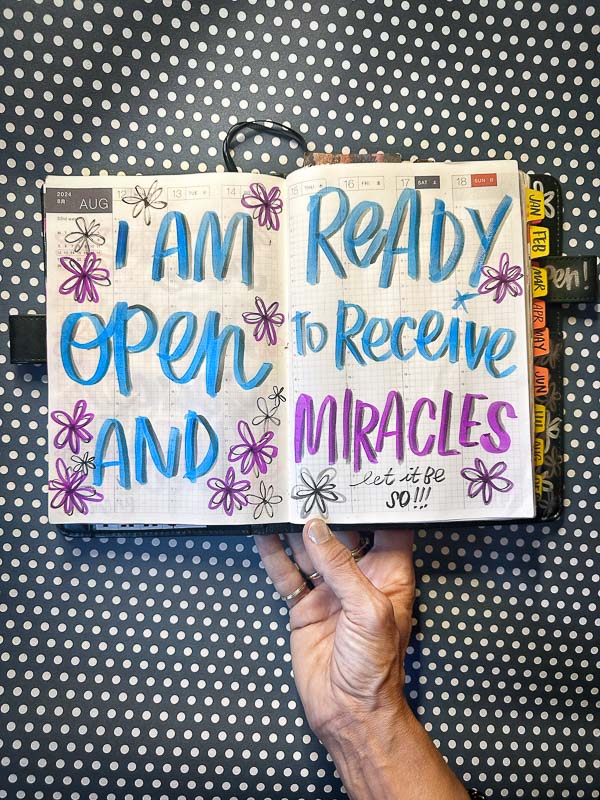 2024
8月 AUG
12
13 TUE 火
14
I AM
OPEN
AND
15 THU 木
16 FRI 金
17 SAT 土
18 SUN 日
READY
TO RECEIVE
MIRACLES
let it be
SO!!!
JAN
FEB
MAR
APR
MAY
JUN
pen!